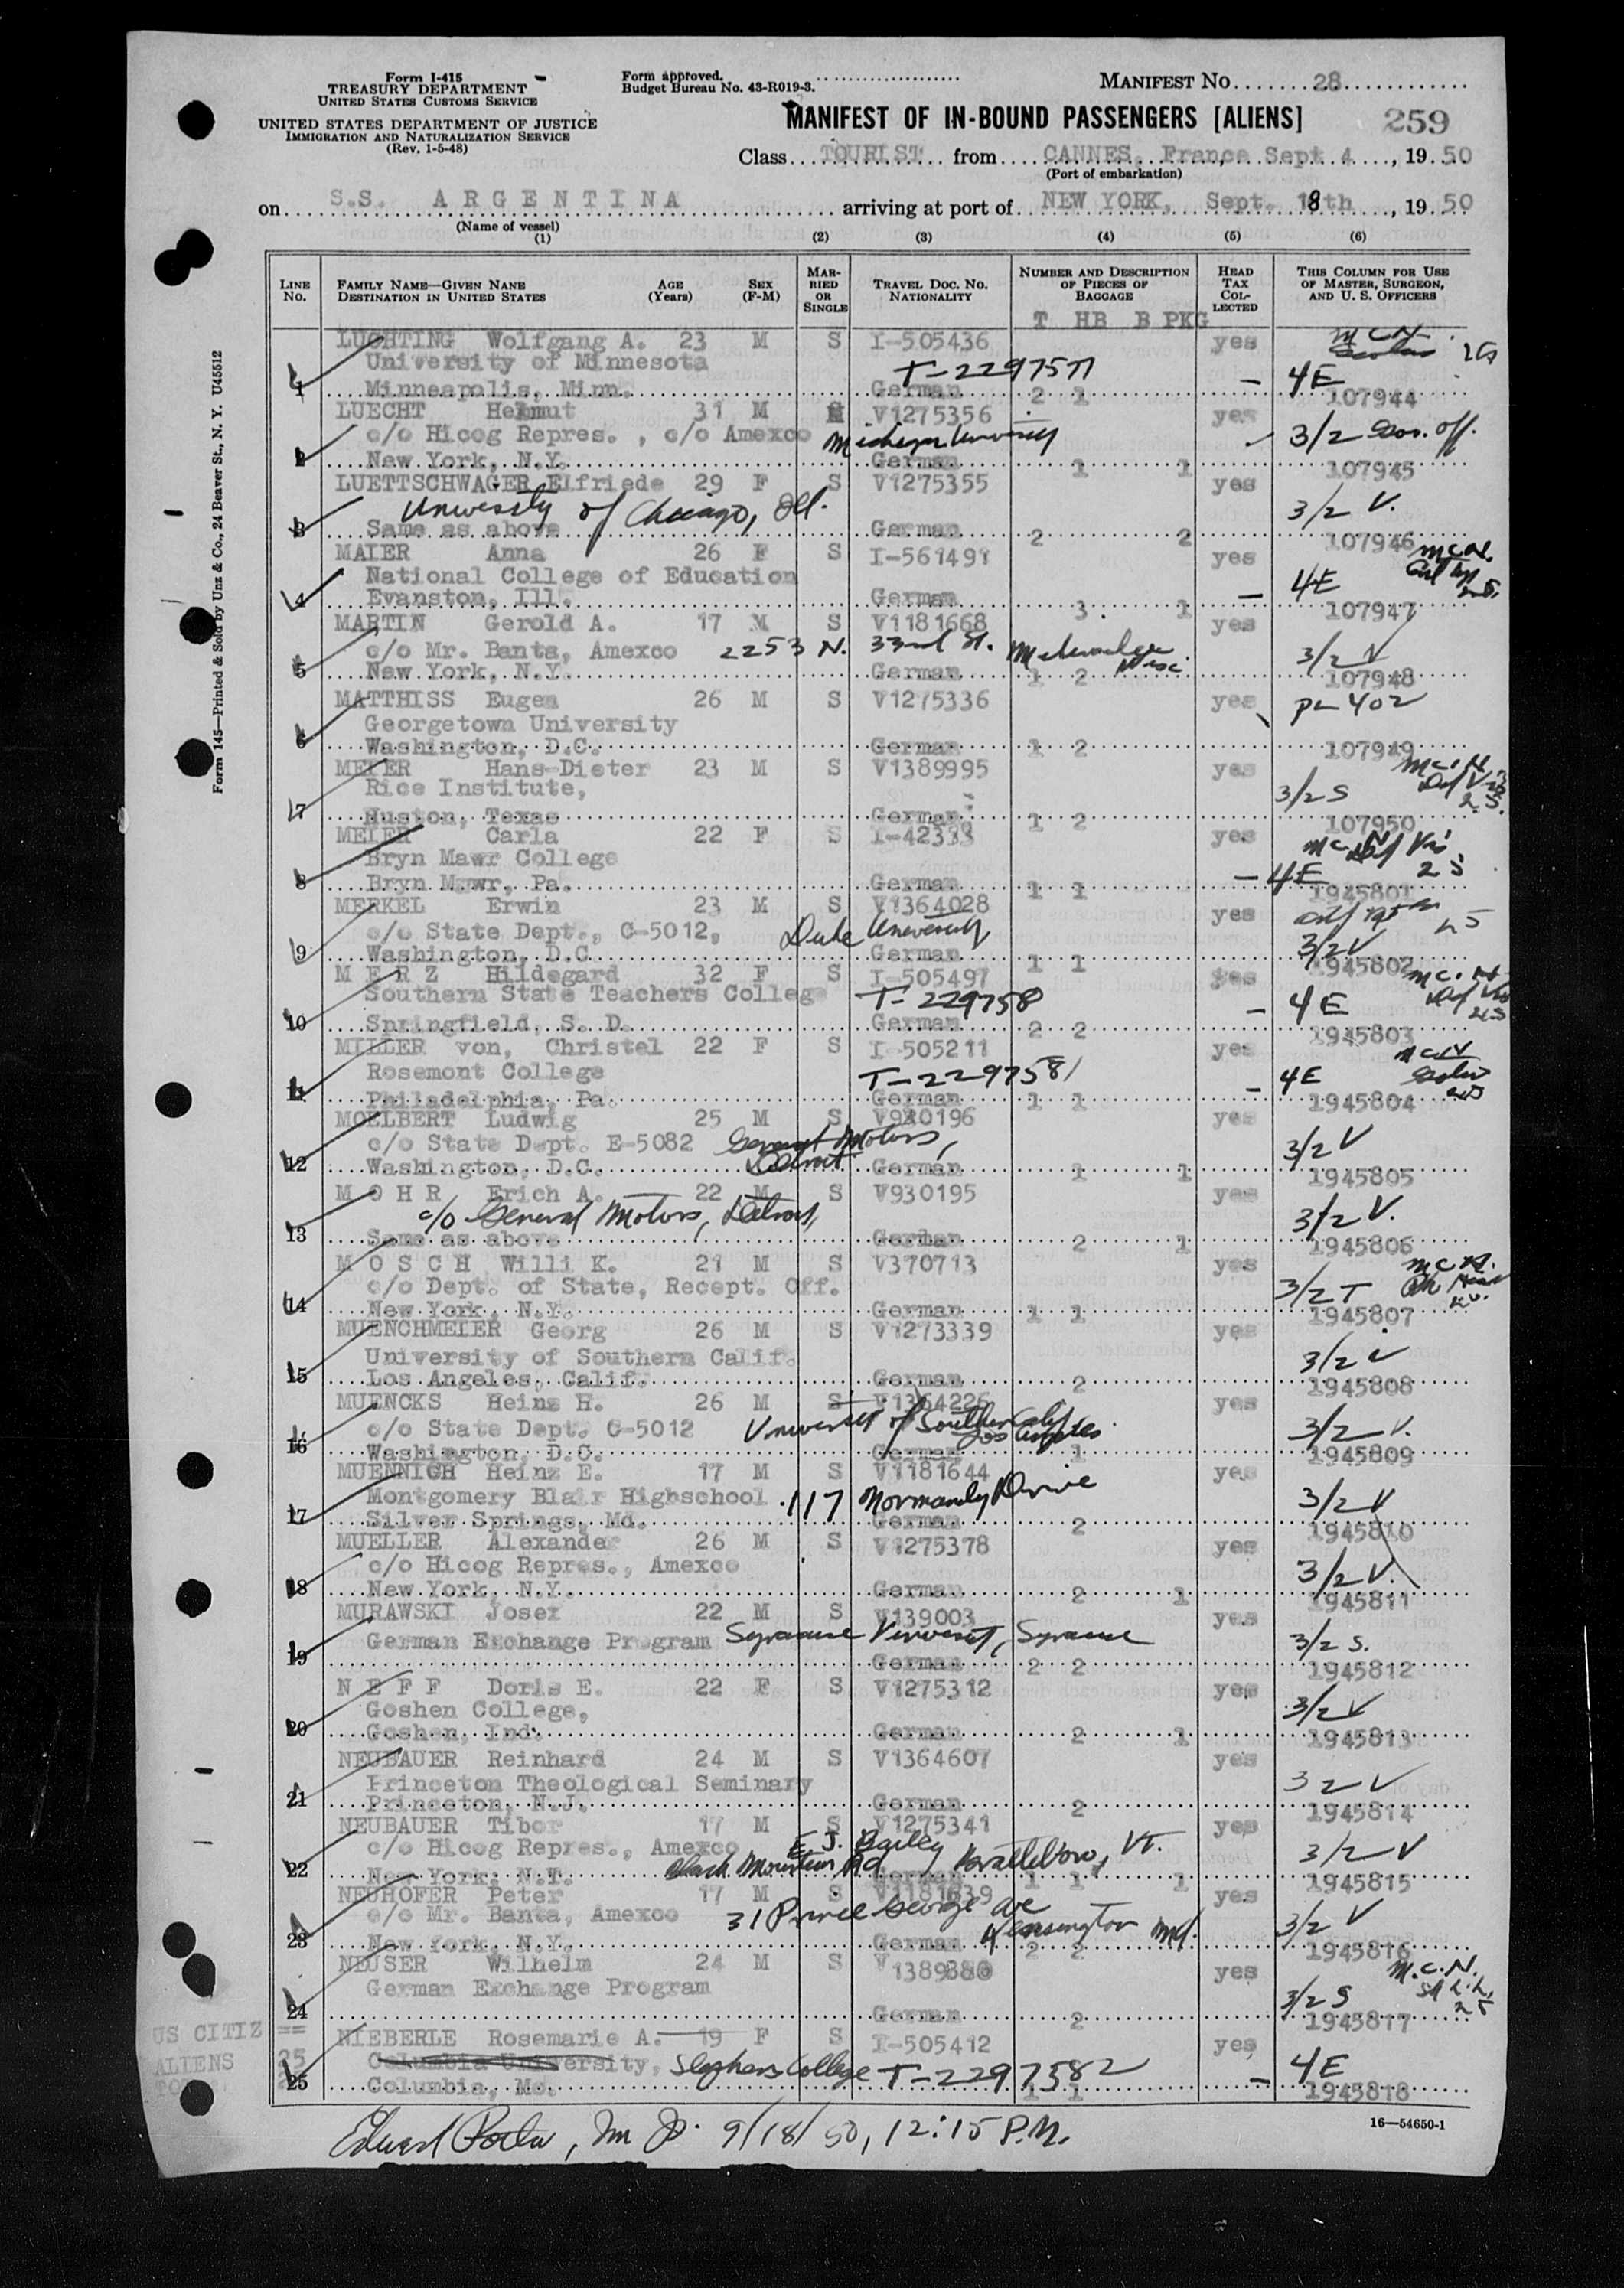 Form I-415
TREASURY DEPARTMENT
UNITED STATES CUSTOMS SERVICE
UNITED STATES DEPARTMENT OF JUSTICE
IMMIGRATION AND NATURALIZATION SERVICE
(Rev. 1-5-48)
Form approved.
Budget Bureau No. 43-R019-3.
MANIFEST NO. 28
MANIFEST OF IN-BOUND PASSENGERS [ALIENS] 259
Class TOURIST from CANNES, France Sept 4, 1950
(Port of embarkation)
on S.S. ARGENTINA arriving at port of NEW YORK, Sept. 18th, 1950
(Name of vessel)
(1) (2) (3) (4) (5) (6)
LINE NO. FAMILY NAME—GIVEN NANE DESTINATION IN UNITED STATES AGE (Years) SEX (F-M) MARRIED OR SINGLE TRAVEL DOC. NO. NATIONALITY NUMBER AND DESCRIPTION OF PIECES OF BAGGAGE HEAD TAX COLLECTED THIS COLUMN FOR USE OF MASTER, SURGEON, AND U. S. OFFICERS
T HB B PKG
LUCHTING Wolfgang A. 23 M S I-505436 yes
University of Minnesota T-2297577 4E
1 Minneapolis, Minn. German 2 1 107944
LUECHT Helmut 31 M V1275356 yes
c/o Hicog Repres., c/o Amexco Michigan University 3/2 Gov. off.
2 New York, N.Y. German 1 1 107945
LUETTSCHWAGER Elfriede 29 F S V1275355 yes
University of Chicago, Ill. 3/2 V.
3 Same as above German 2 2 107946
MAIER Anna 26 F S I-561491 yes M.C.N.
National College of Education 4E
4 Evanston, Ill. German 3 1 107947
MARTIN Gerold A. 17 M S V1181668 yes
c/o Mr. Banta, Amexco 2253 N. 33rd St. Milwaukee Wisc. 3/2 V
5 New York, N.Y. German 1 2 107948
MATTHISS Eugen 26 M S V1275336 yes PL 402
Georgetown University
6 Washington, D.C. German 1 2 107949
MEYER Hans-Dieter 23 M S V1389995 yes M.C.N. Def Vis 25
Rice Institute, 3/2 S
7 Huston, Texas German 1 2 107950
MEIER Carla 22 F S I-42333 yes M.C.N. Def Vis 25
Bryn Mawr College 4E
8 Bryn Mawr, Pa. German 1 1 1945801
MERKEL Erwin 23 M S V1364028 yes
c/o State Dept., C-5012, Duke University 3/2 V
9 Washington, D.C. German 1 1 1945802
MERZ Hildegard 32 F S I-505497 yes M.C.N. Def Vis 25
Southern State Teachers College T-229758 4E
10 Springfield, S. D. German 2 2 1945803
MILLER von, Christel 22 F S I-505211 yes M.C.N.
Rosemont College T-2297581 4E
11 Philadelphia, Pa. German 1 1 1945804
MOELBERT Ludwig 25 M S V930196 yes
c/o State Dept. E-5082 General Motors, Detroit 3/2 V
12 Washington, D.C. German 1 1 1945805
MOHR Erich A. 22 M S V930195 yes
c/o General Motors, Detroit, 3/2 V.
13 Same as above German 2 1 1945806
MOSCH Willi K. 21 M S V370713 yes M.C.N.
c/o Dept. of State, Recept. Off. 3/2 T
14 New York, N.Y. German 1 1 1945807
MUENCHMEIER Georg 26 M S V1273339 yes
University of Southern Calif. 3/2 V
15 Los Angeles, Calif. German 2 1945808
MUENCKS Heinz H. 26 M S V1364226 yes
c/o State Dept. C-5012 University of Southern Calif. Los Angeles 3/2 V.
16 Washington, D.C. German 1 1945809
MUENNICH Heinz E. 17 M S V1181644 yes
Montgomery Blair Highschool 117 Normandy Drive 3/2 V
17 Silver Springs, Md. German 2 1945810
MUELLER Alexander 26 M S V1275378 yes
c/o Hicog Repres., Amexco 3/2 V.
18 New York, N.Y. German 2 1 1945811
MURAWSKI Josex 22 M S V139003 yes
German Exchange Program Syracuse University, Syracuse 3/2 S.
19 German 2 2 1945812
NEFF Doris E. 22 F S V1275312 yes
Goshen College, 3/2 V
20 Goshen, Ind. German 2 1 1945813
NEUBAUER Reinhard 24 M S V1364607 yes
Princeton Theological Seminary 3 2 V
21 Princeton, N.J. German 2 1945814
NEUBAUER Tibor 17 M S V1275341 yes
c/o Hicog Repres., Amexco E. J. Bailey Brattleboro, Vt. 3/2 V
22 New York, N.Y. Black Mountain Rd. German 1 1 1 1945815
NEUHOFER Peter 17 M S V1181639 yes
c/o Mr. Banta, Amexco 31 Prince George Ave Kensington Md. 3/2 V
23 New York, N.Y. German 2 2 1945816
NEUSER Wilhelm 24 M S V1389380 yes M.C.N.
German Exchange Program 3/2 S 25
24 German 2 1945817
NIEBERLE Rosemarie A. 19 F S I-505412 yes
Columbia University, Stephens College T-2297582 4E
25 Columbia, Mo. German 1 1 1945818
US CITIZ ==
ALIENS 25
16—54650-1
9/18/50, 12:15 P.M.
Form 145—Printed & Sold by Unz & Co., 24 Beaver St., N. Y. U45512